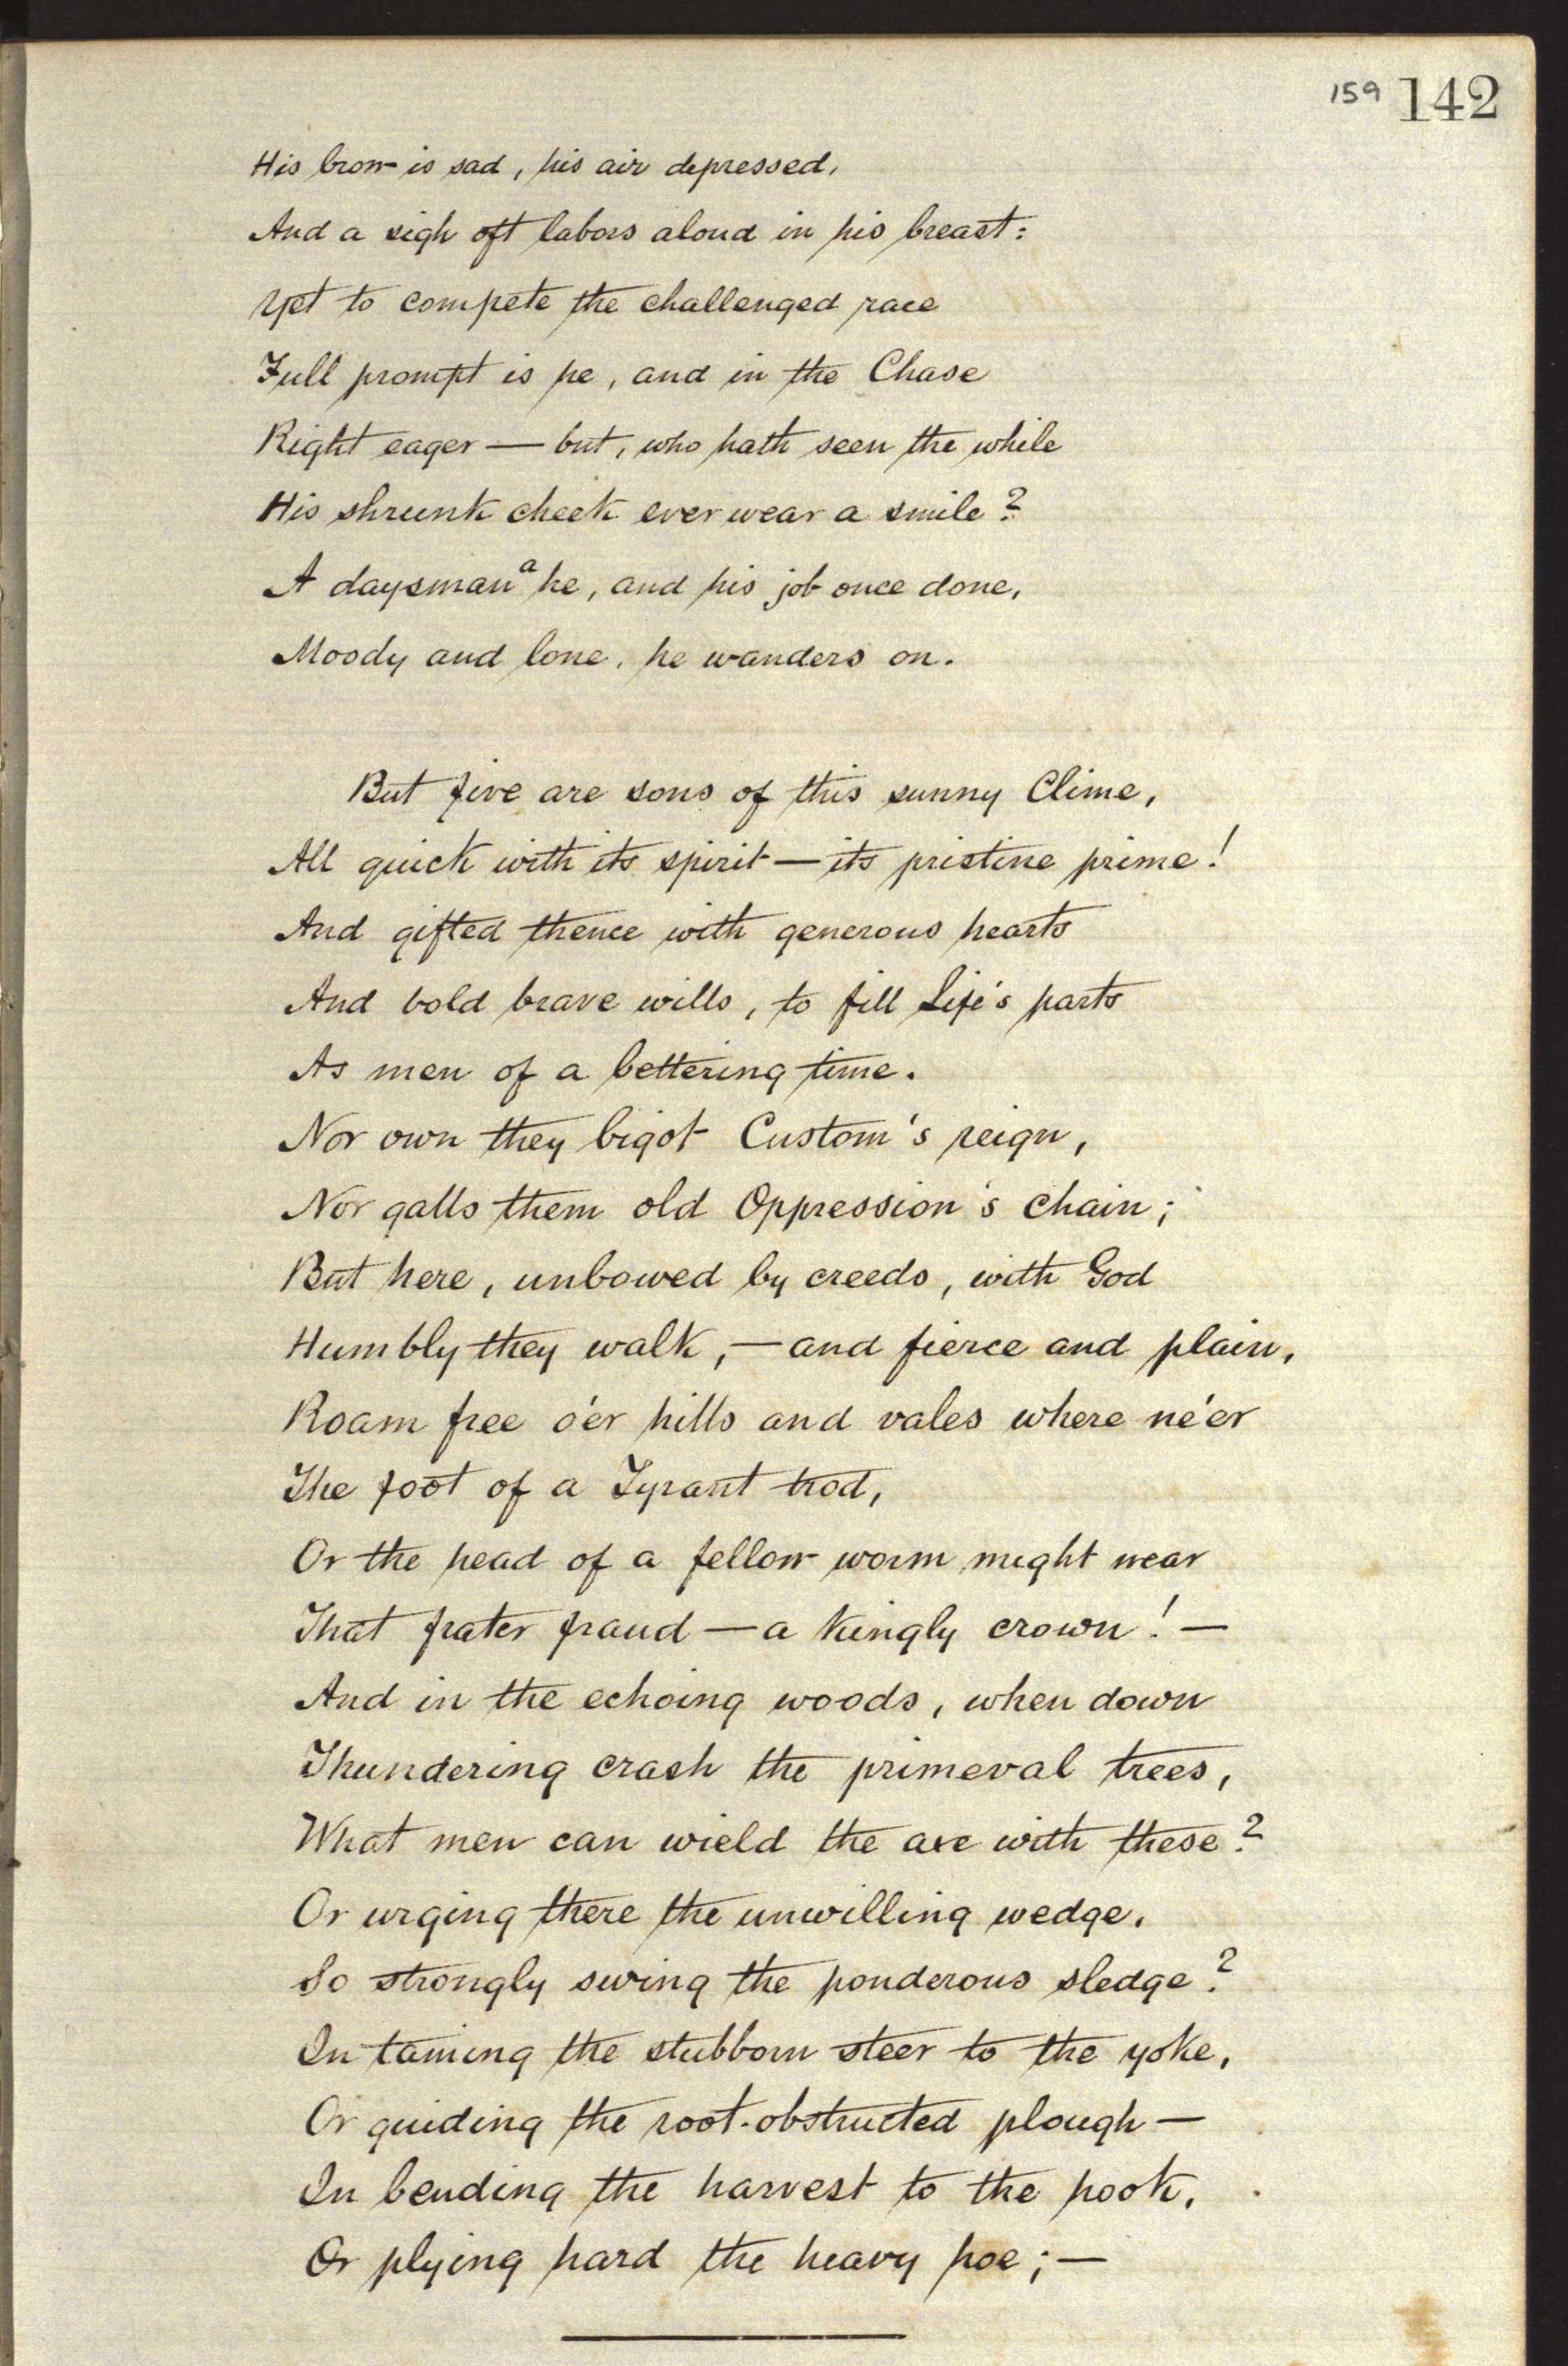 159 142
His brow is sad, his air depressed,
And a sigh oft labors aloud in his breast:
Yet to compete the challenged race
Full prompt is he, and in the Chase
Right eager — but, who hath seen the while
His shrunk cheek ever wear a smile?
A daysman a he, and his job once done,
Moody and lone, he wanders on.
But five are sons of this sunny Clime,
All quick with its spirit — its pristine prime!
And gifted thence with generous hearts
And bold brave wills, to fill Life's parts
As men of a bettering time.
Nor own they bigot Custom's reign,
Nor galls them old Oppression's chain;
But here, unbowed by creeds, with God
Humbly they walk, — and fierce and plain,
Roam free o'er hills and vales where ne'er
The foot of a Tyrant trod,
Or the head of a fellow worm might wear
That frater fraud — a kingly crown! —
And in the echoing woods, when down
Thundering crash the primeval trees,
What men can wield the axe with these?
Or urging there the unwilling wedge,
So strongly swing the ponderous sledge?
In taming the stubborn steer to the yoke,
Or guiding the root-obstructed plough —
In bending the harvest to the hook,
Or plying hard the heavy hoe; —